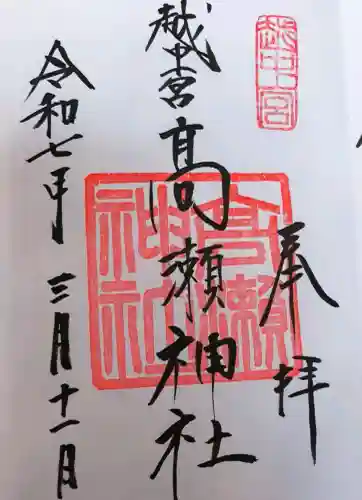 奉拝
越中宮
越中宮
髙瀬神社
高瀬神社
令和七年 三月十一日